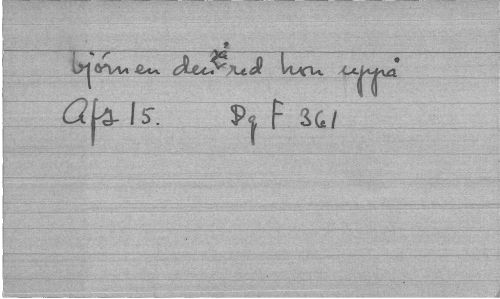 björnen den red hon uppå
Afz 15. Dq F 361